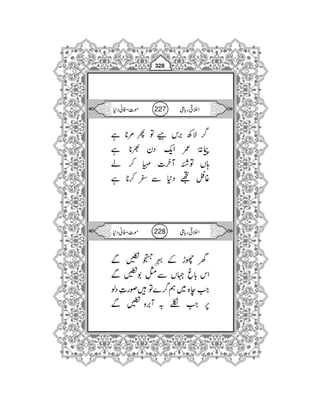 328
اخلاقی رباعی 227 موت - فانی دنیا
گر لاکھ برس جیے تو پھر مرنا ہے
پیمانۂ عمر ایک دن بھرنا ہے
ہاں توشۂ آخرت مہیا کر لے
غافل تجھے دنیا سے سفر کرنا ہے
اخلاقی رباعی 228 موت - فانی دنیا
گھر چھوڑ کے بہرِ جستجو نکلیں گے
اس باغِ جہاں سے مثلِ بو نکلیں گے
جب چاہ میں ہم گرے تو ہیں صورتِ دلو
پر جب نکلے بہ آبرو نکلیں گے